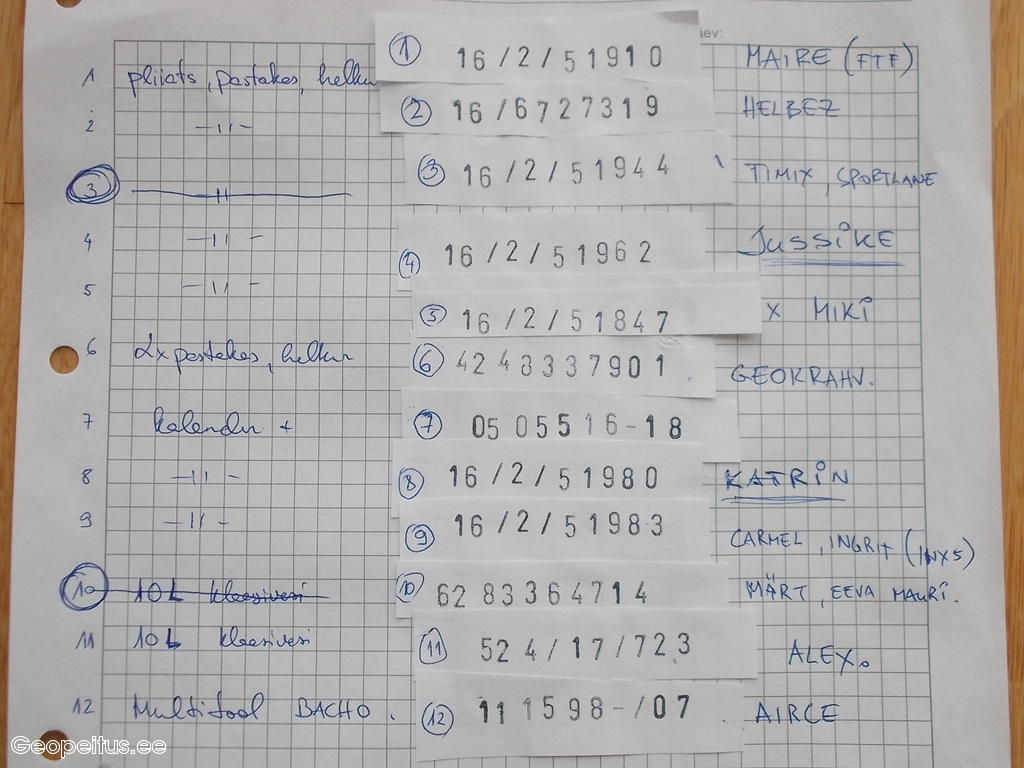 ev:
1 pliiats, pastakas, helkur ① 16/2/51910 MAIRE (FTF)
2 —11— ② 16/6727319 HELBEZ
3 —11— ③ 16/2/51944 TIMIX, SPORTLANE
4 —11— ④ 16/2/51962 JUSSIKE
5 —11— ⑤ 16/2/51847 X MIKI
6 2x pastakas, helkur ⑥ 4248337901 GEOKRAHV.
7 kalender + ⑦ 050516-18
8 —11— ⑧ 16/2/51980 KATRIN
9 —11— ⑨ 16/2/51983 CARMEL, INGRIT (INX5)
10 10L klaasivesi ⑩ 6283364714 MÄRT, EEVA MAURI.
11 10L klaasivesi ⑪ 524/17/723 ALEX.
12 Multitool BACHO. ⑫ 111598-/07 AIRCE
Geopeitus.ee